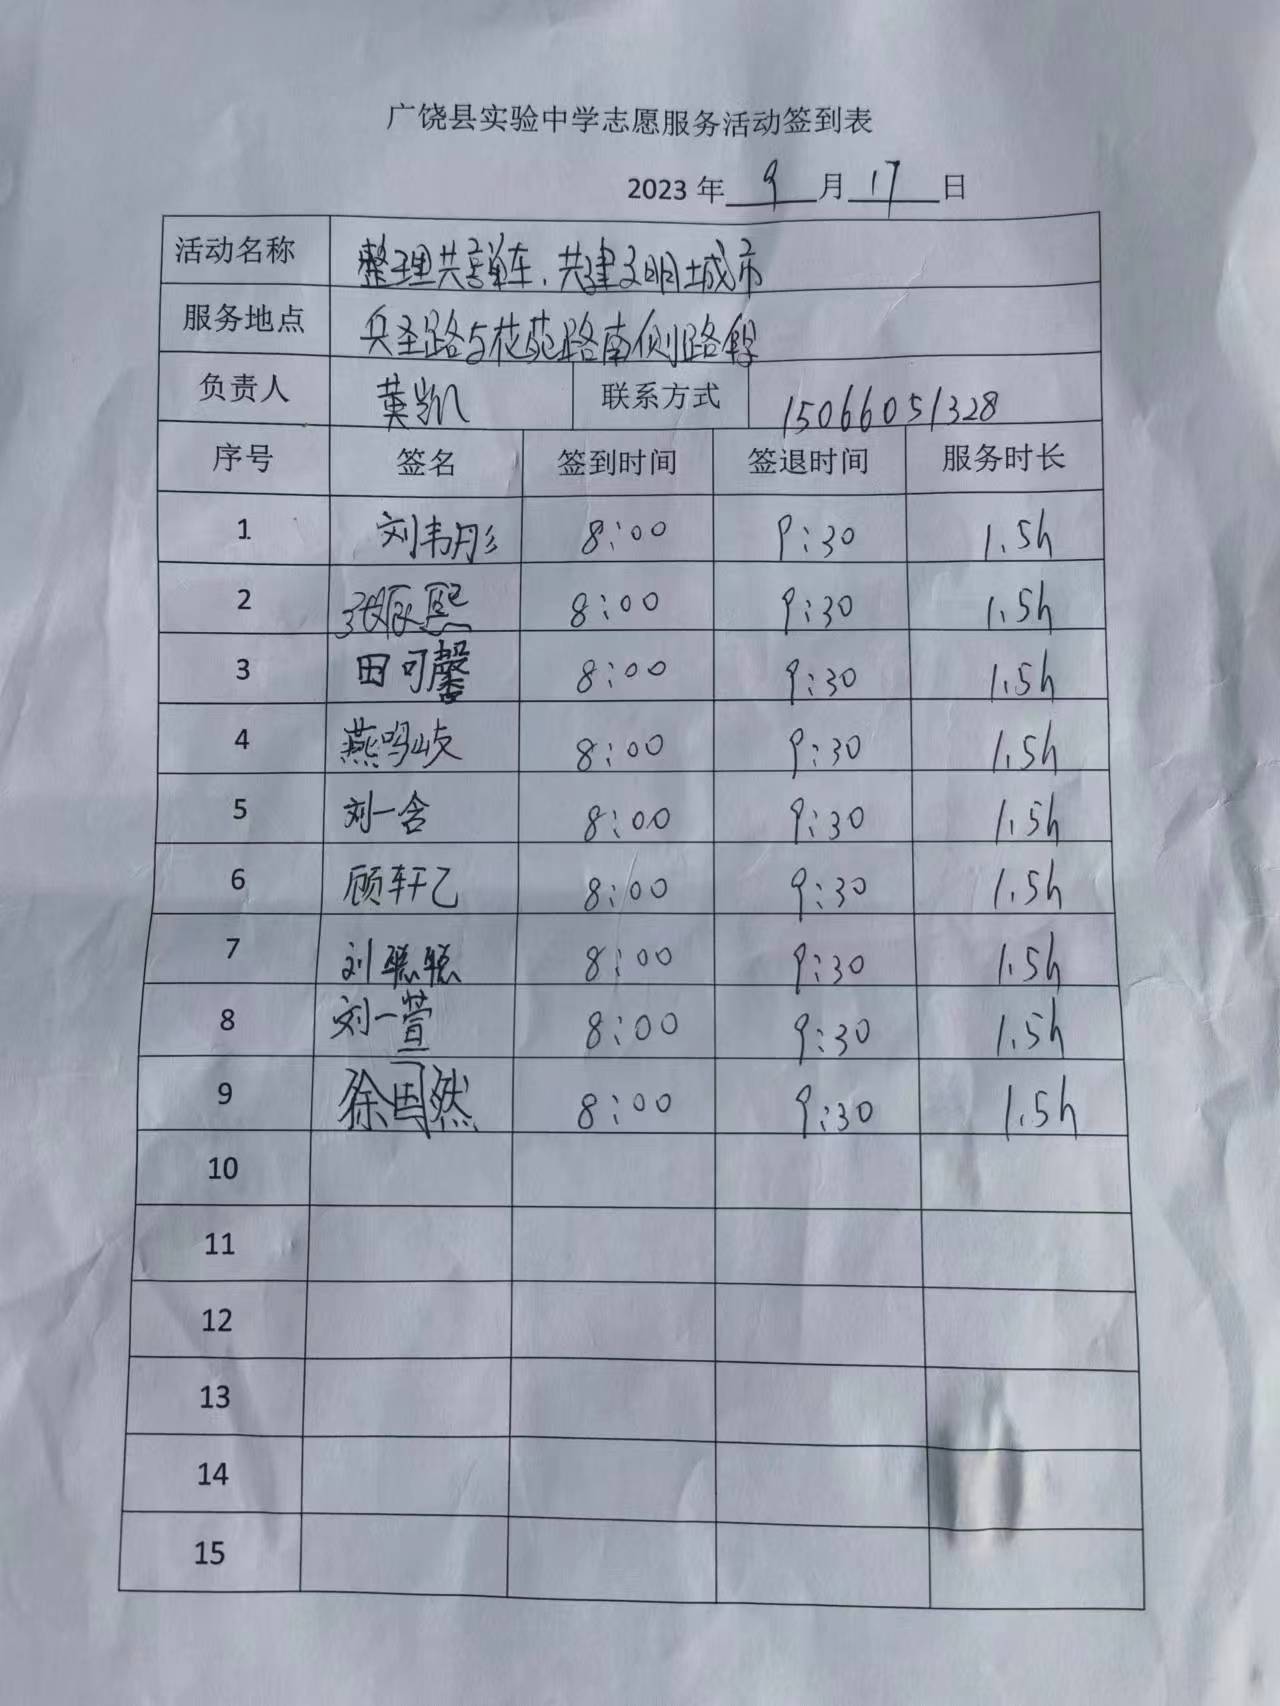 广饶县实验中学志愿服务活动签到表
2023 年 9 月 17 日
活动名称 整理共享单车、共建文明城市
服务地点 兵圣路与花苑路南侧路段
负责人 黄凯 联系方式 15066051328
序号 签名 签到时间 签退时间 服务时长
1 刘韦彤 8:00 9:30 1.5h
2 8:00 9:30 1.5h
3 田可馨 8:00 9:30 1.5h
4 燕鸣岐 8:00 9:30 1.5h
5 刘一含 8:00 9:30 1.5h
6 顾轩乙 8:00 9:30 1.5h
7 刘聪聪 8:00 9:30 1.5h
8 刘一萱 8:00 9:30 1.5h
9 8:00 9:30 1.5h
10
11
12
13
14
15